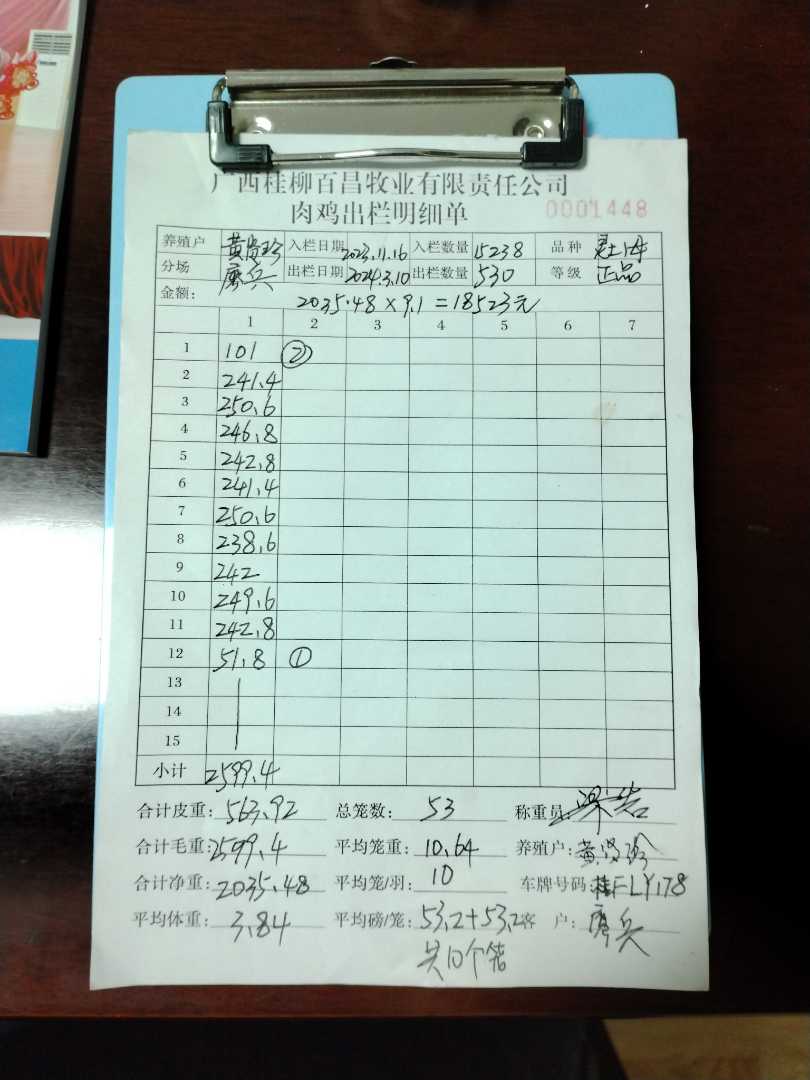 广西桂柳百昌牧业有限责任公司
肉鸡出栏明细单 0001448
养殖户 黄贤珍 入栏日期 2023.11.16 入栏数量 15238 品种
分场 廖兵 出栏日期 2024.3.10 出栏数量 530 等级 正品
金额: 2035.48×9.1=18523元
1 2 3 4 5 6 7
1 101 ②
2 241.4
3 250.6
4 246.8
5 242.8
6 241.4
7 250.6
8 238.6
9 242
10 249.6
11 242.8
12 51.8 ①
13
14
15
小计 2599.4
合计皮重: 563.92 总笼数: 53 称重员:
合计毛重: 2599.4 平均笼重: 10.64 养殖户: 黄贤珍
合计净重: 2035.48 平均笼/羽: 10 车牌号码: 桂FLY178
平均体重 3.84 平均磅/笼: 53.2+53.2 客户: 廖兵
共10个笼